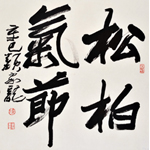 松柏
氣節
辛巳